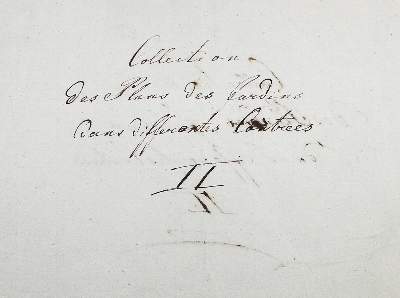 Collection
des Plans des Jardins
dans differentes Contrees
II